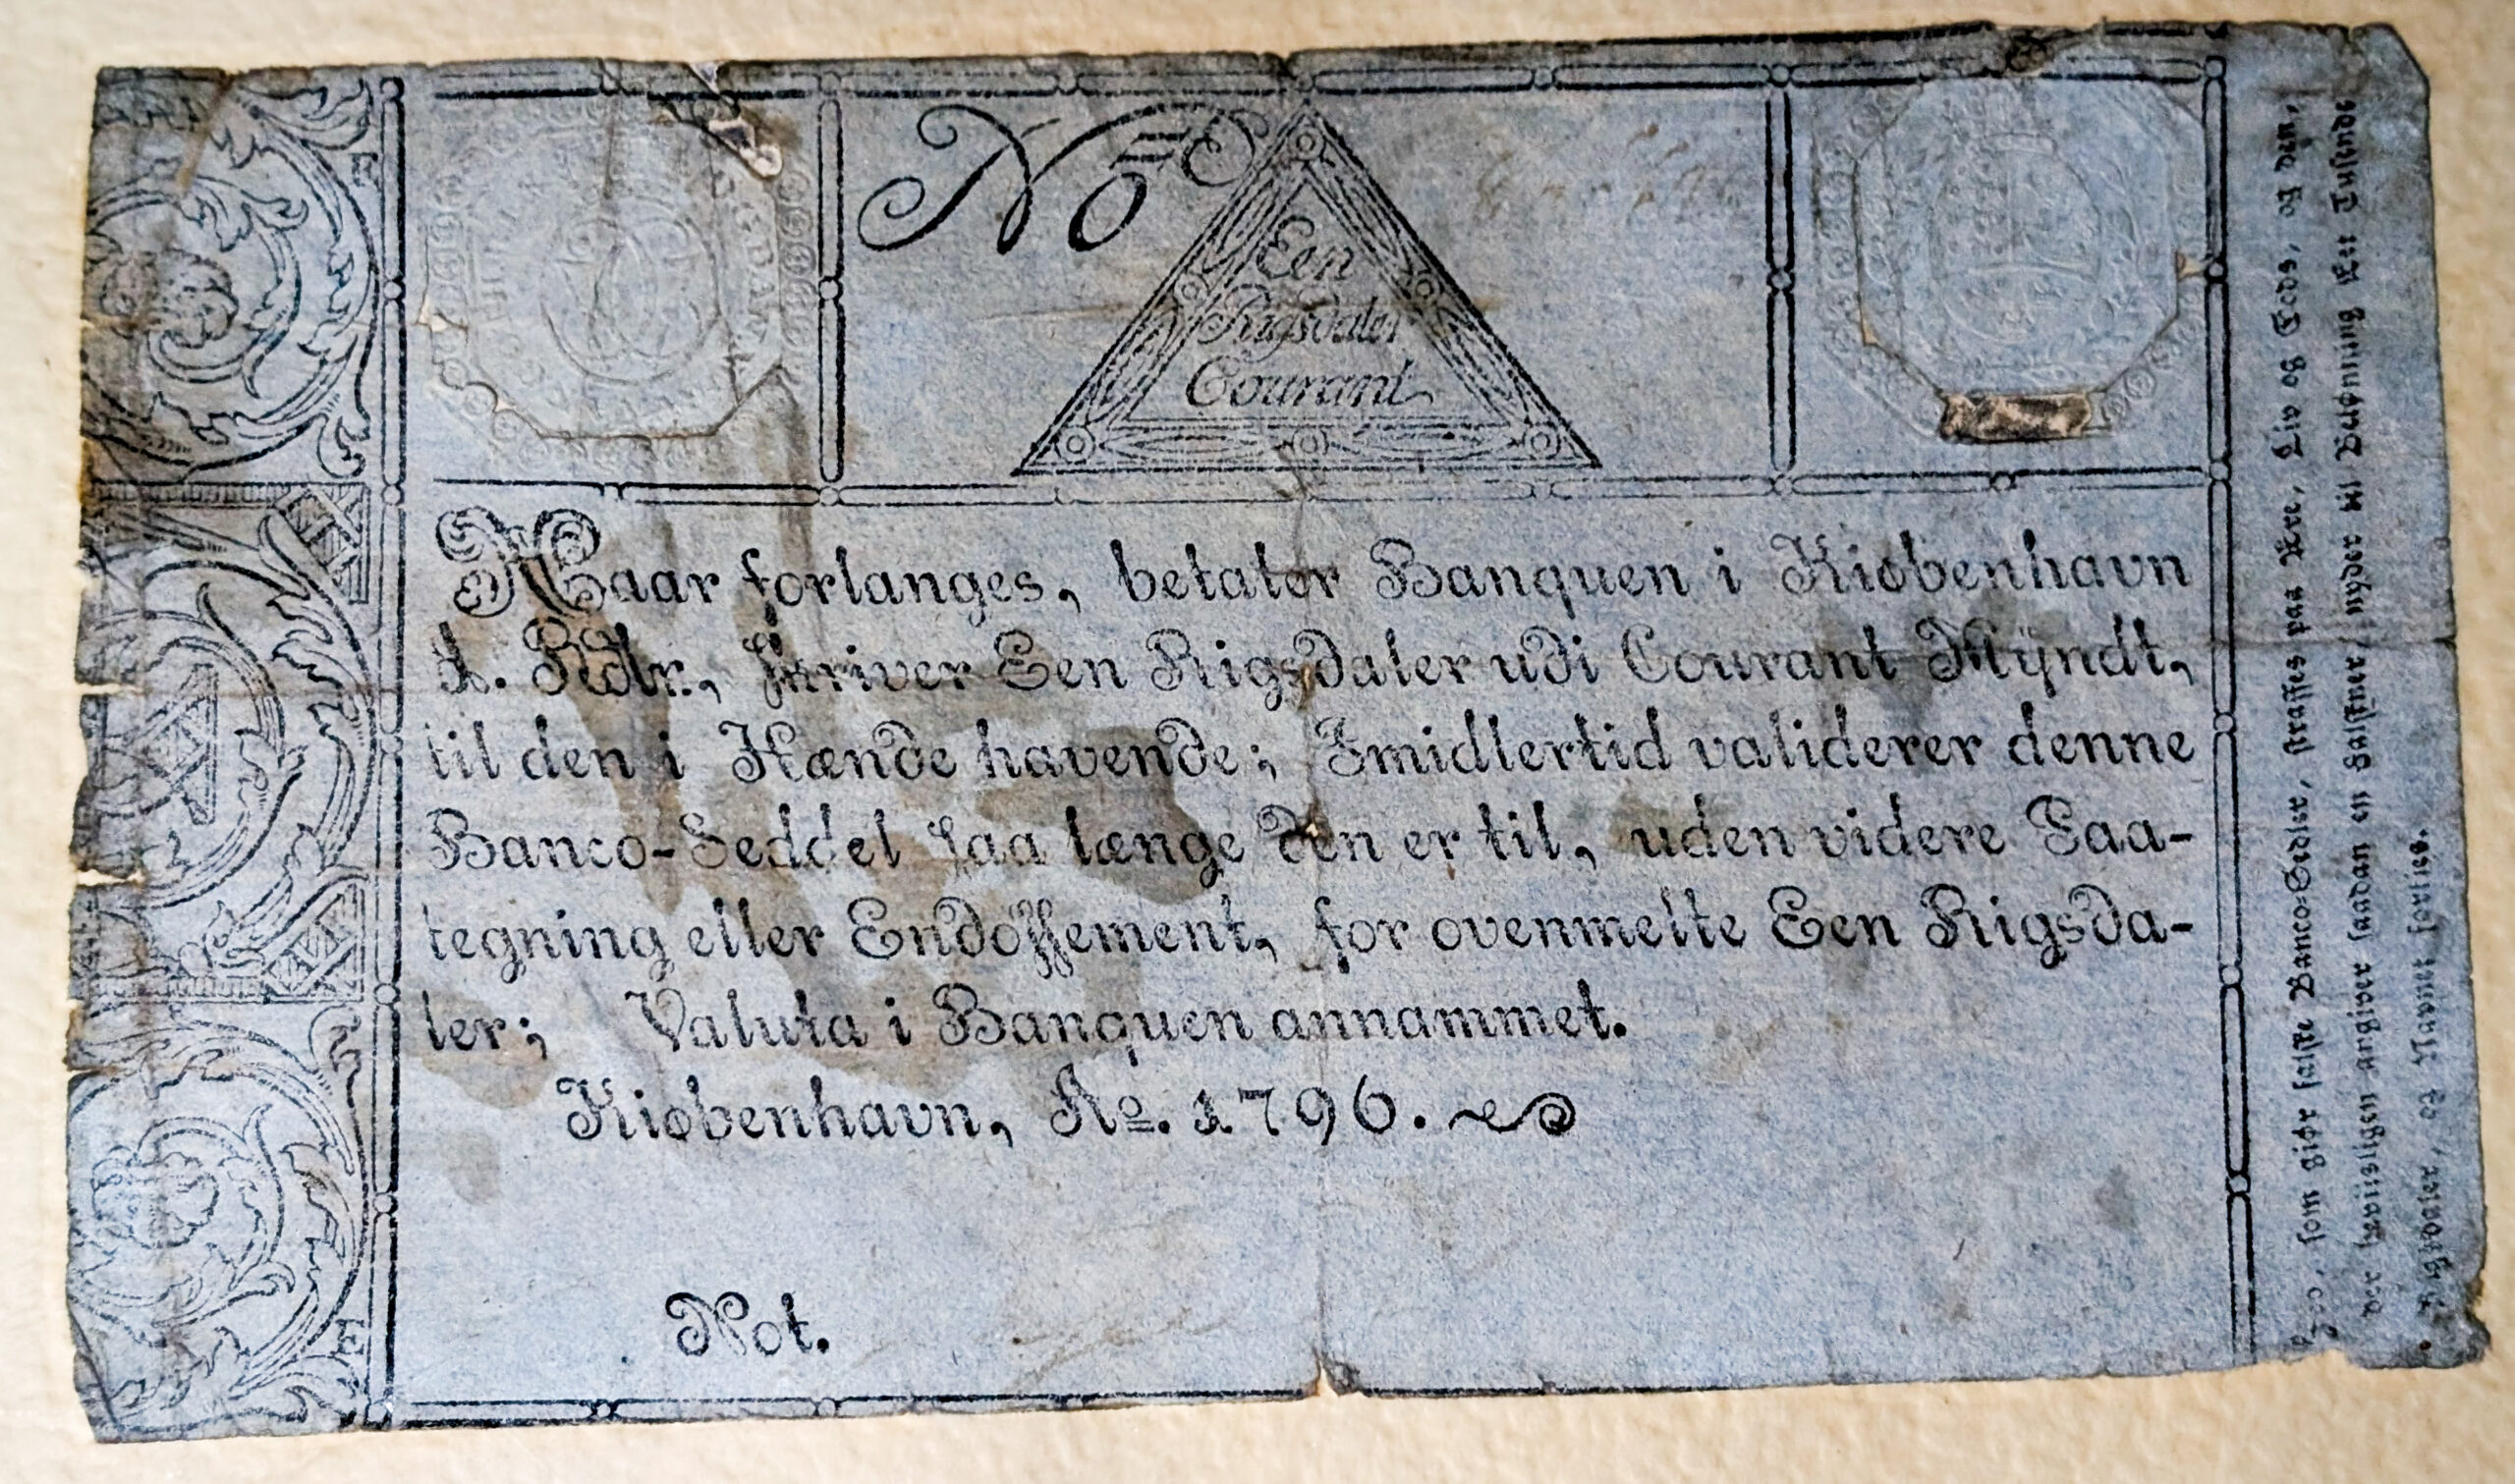 No
Een
Rigsdaler
Courant
Naar forlanges, betaler Banquen i Kiøbenhavn
1. Rdlr., skriver Een Rigsdaler udi Courant Mÿndt,
til den i Hænde havende; Imidlertid validerer denne
Banco-Seddel saa længe den er til, uden videre Paa-
tegning eller Endossement, for ovenmelte Een Rigsda-
ler; Valuta i Banquen annammet.
Kiøbenhavn, Ao. 1796.
Not.
som giør falske Banco-Sedler, straffes paa Ære, Liv og Gods, og den,
der skielligen angiver saadan en Falskner, nyder til Belønning Et Tusinde
Rigsdaler, og Navnet forties.